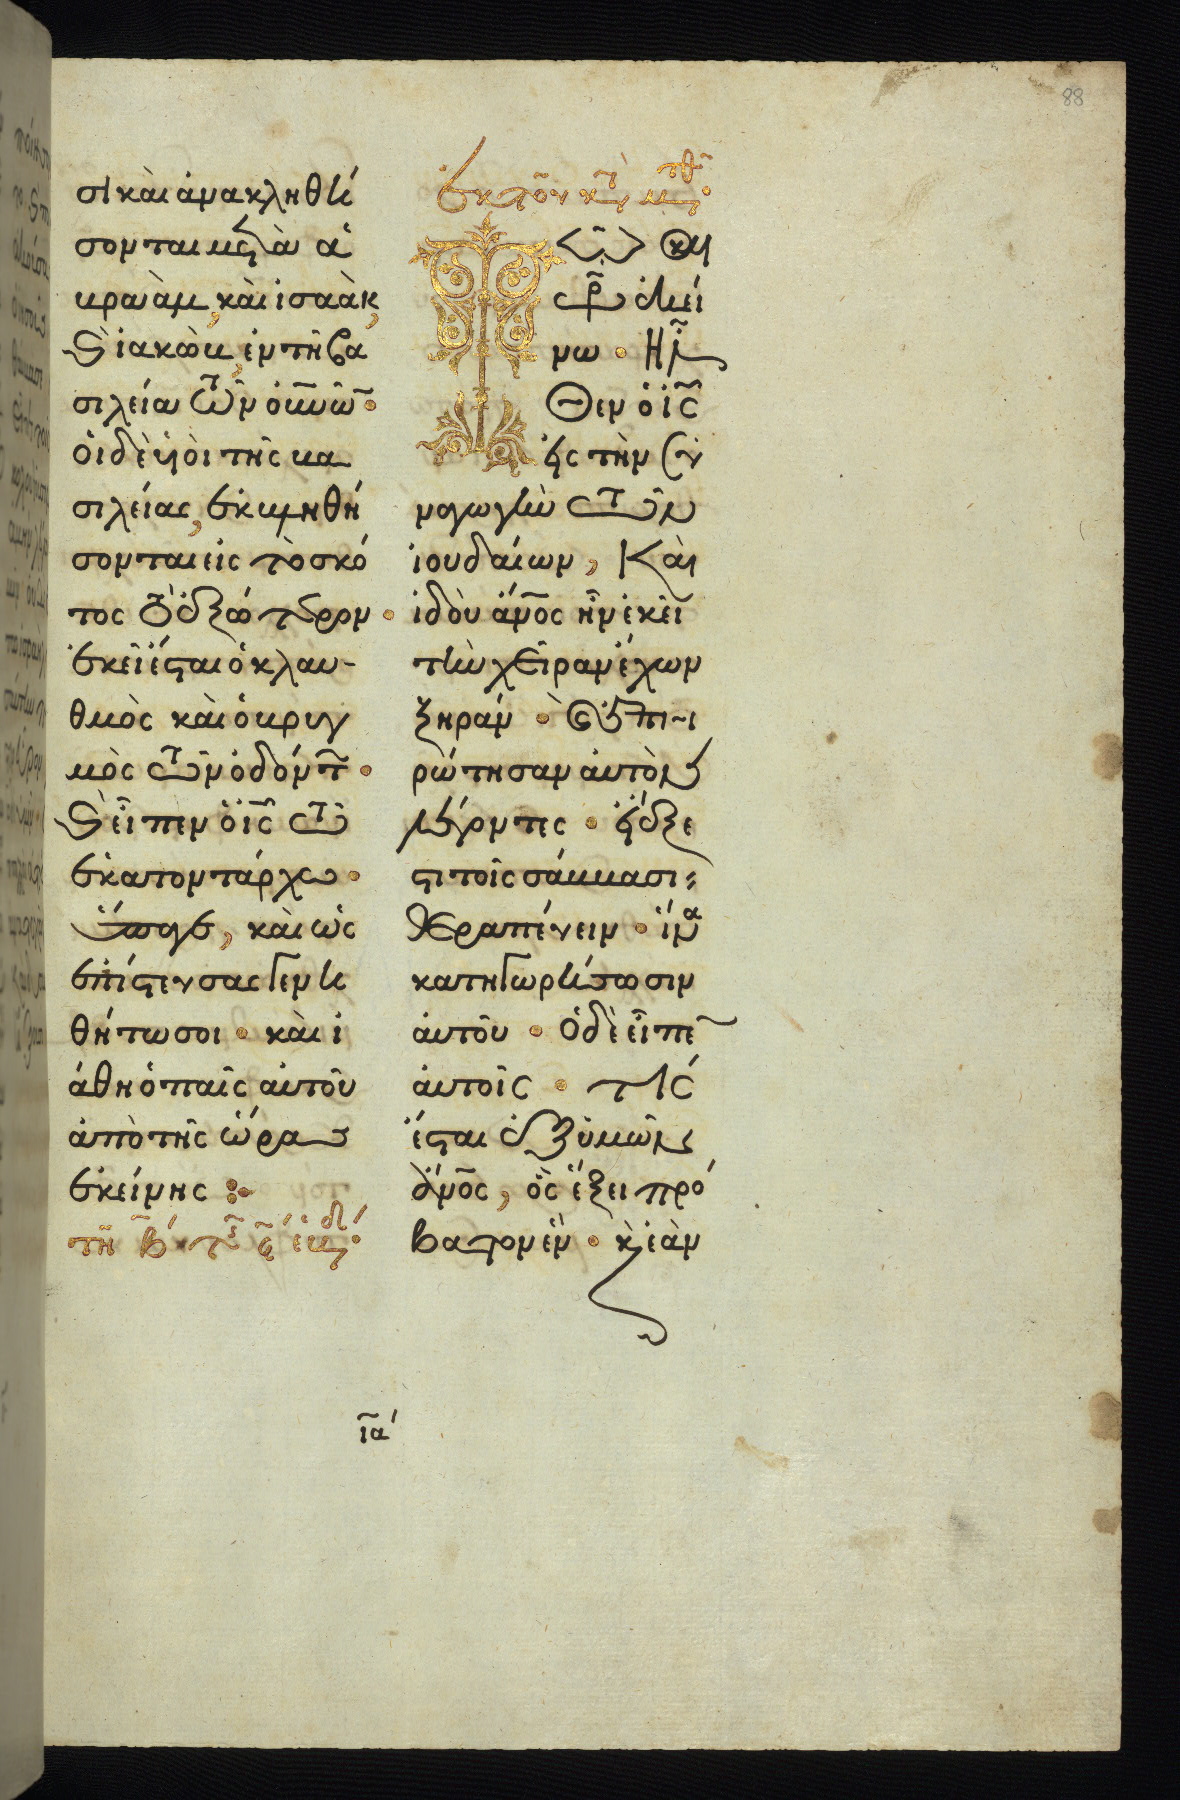 88
σι καὶ ἀνακληθή
σονται μετὰ ἀ
βραὰμ, καὶ ἰσαὰκ,
καὶ ἰακὼβ, ἐν τῆ βα
σιλεία τῶν οὐνῶν·
οἱ δὲ υἱοὶ τῆς βα
σιλείας, ἐκβληθή
σονται εἰς τὸ σκό
τος τὸ ἐξώτερον·
ἐκεῖ ἔσται ὁ κλαυ-
θμὸς καὶ ὁ βρυγ
μὸς τῶν ὀδόντ·
καὶ εἶπεν ὁ ἰς τῶ
ἑκατοντάρχω·
ὕπαγε, καὶ ὡς
ἐπίστευσας γενη
θήτω σοι· καὶ ἰ
άθη ὁ παῖς αὐτοῦ
ἀπὸ τῆς ὥρας
ἐκείνης:
τῆ β τ ς ἑβδ
ἐκ τοῦ κτ μτθ
Τῶ και
ρῶ ἐκεί
νω· Ἦλ
θεν ὁ ἰς
εἰς τὴν συ
ναγωγὴν τῶν
ἰουδαίων, Καὶ
ἰδοὺ ἄνος ἦν ἐκεῖ
τὴν χεῖραν ἔχων
ξηράν· καὶ ἐπη
ρώτησαν αὐτὸν
λέγοντες· εἰ ἔξε
στι τοῖς σάββασι
θεραπεύειν· ἵνα
κατηγορήσωσιν
αὐτοῦ· Ὁ δὲ εἶπε
αὐτοῖς· τίς
ἔσται ἐξ ὑμῶν
ἄνος, ὃς ἕξει πρό
βατον ἓν· κ ἐὰν
ια